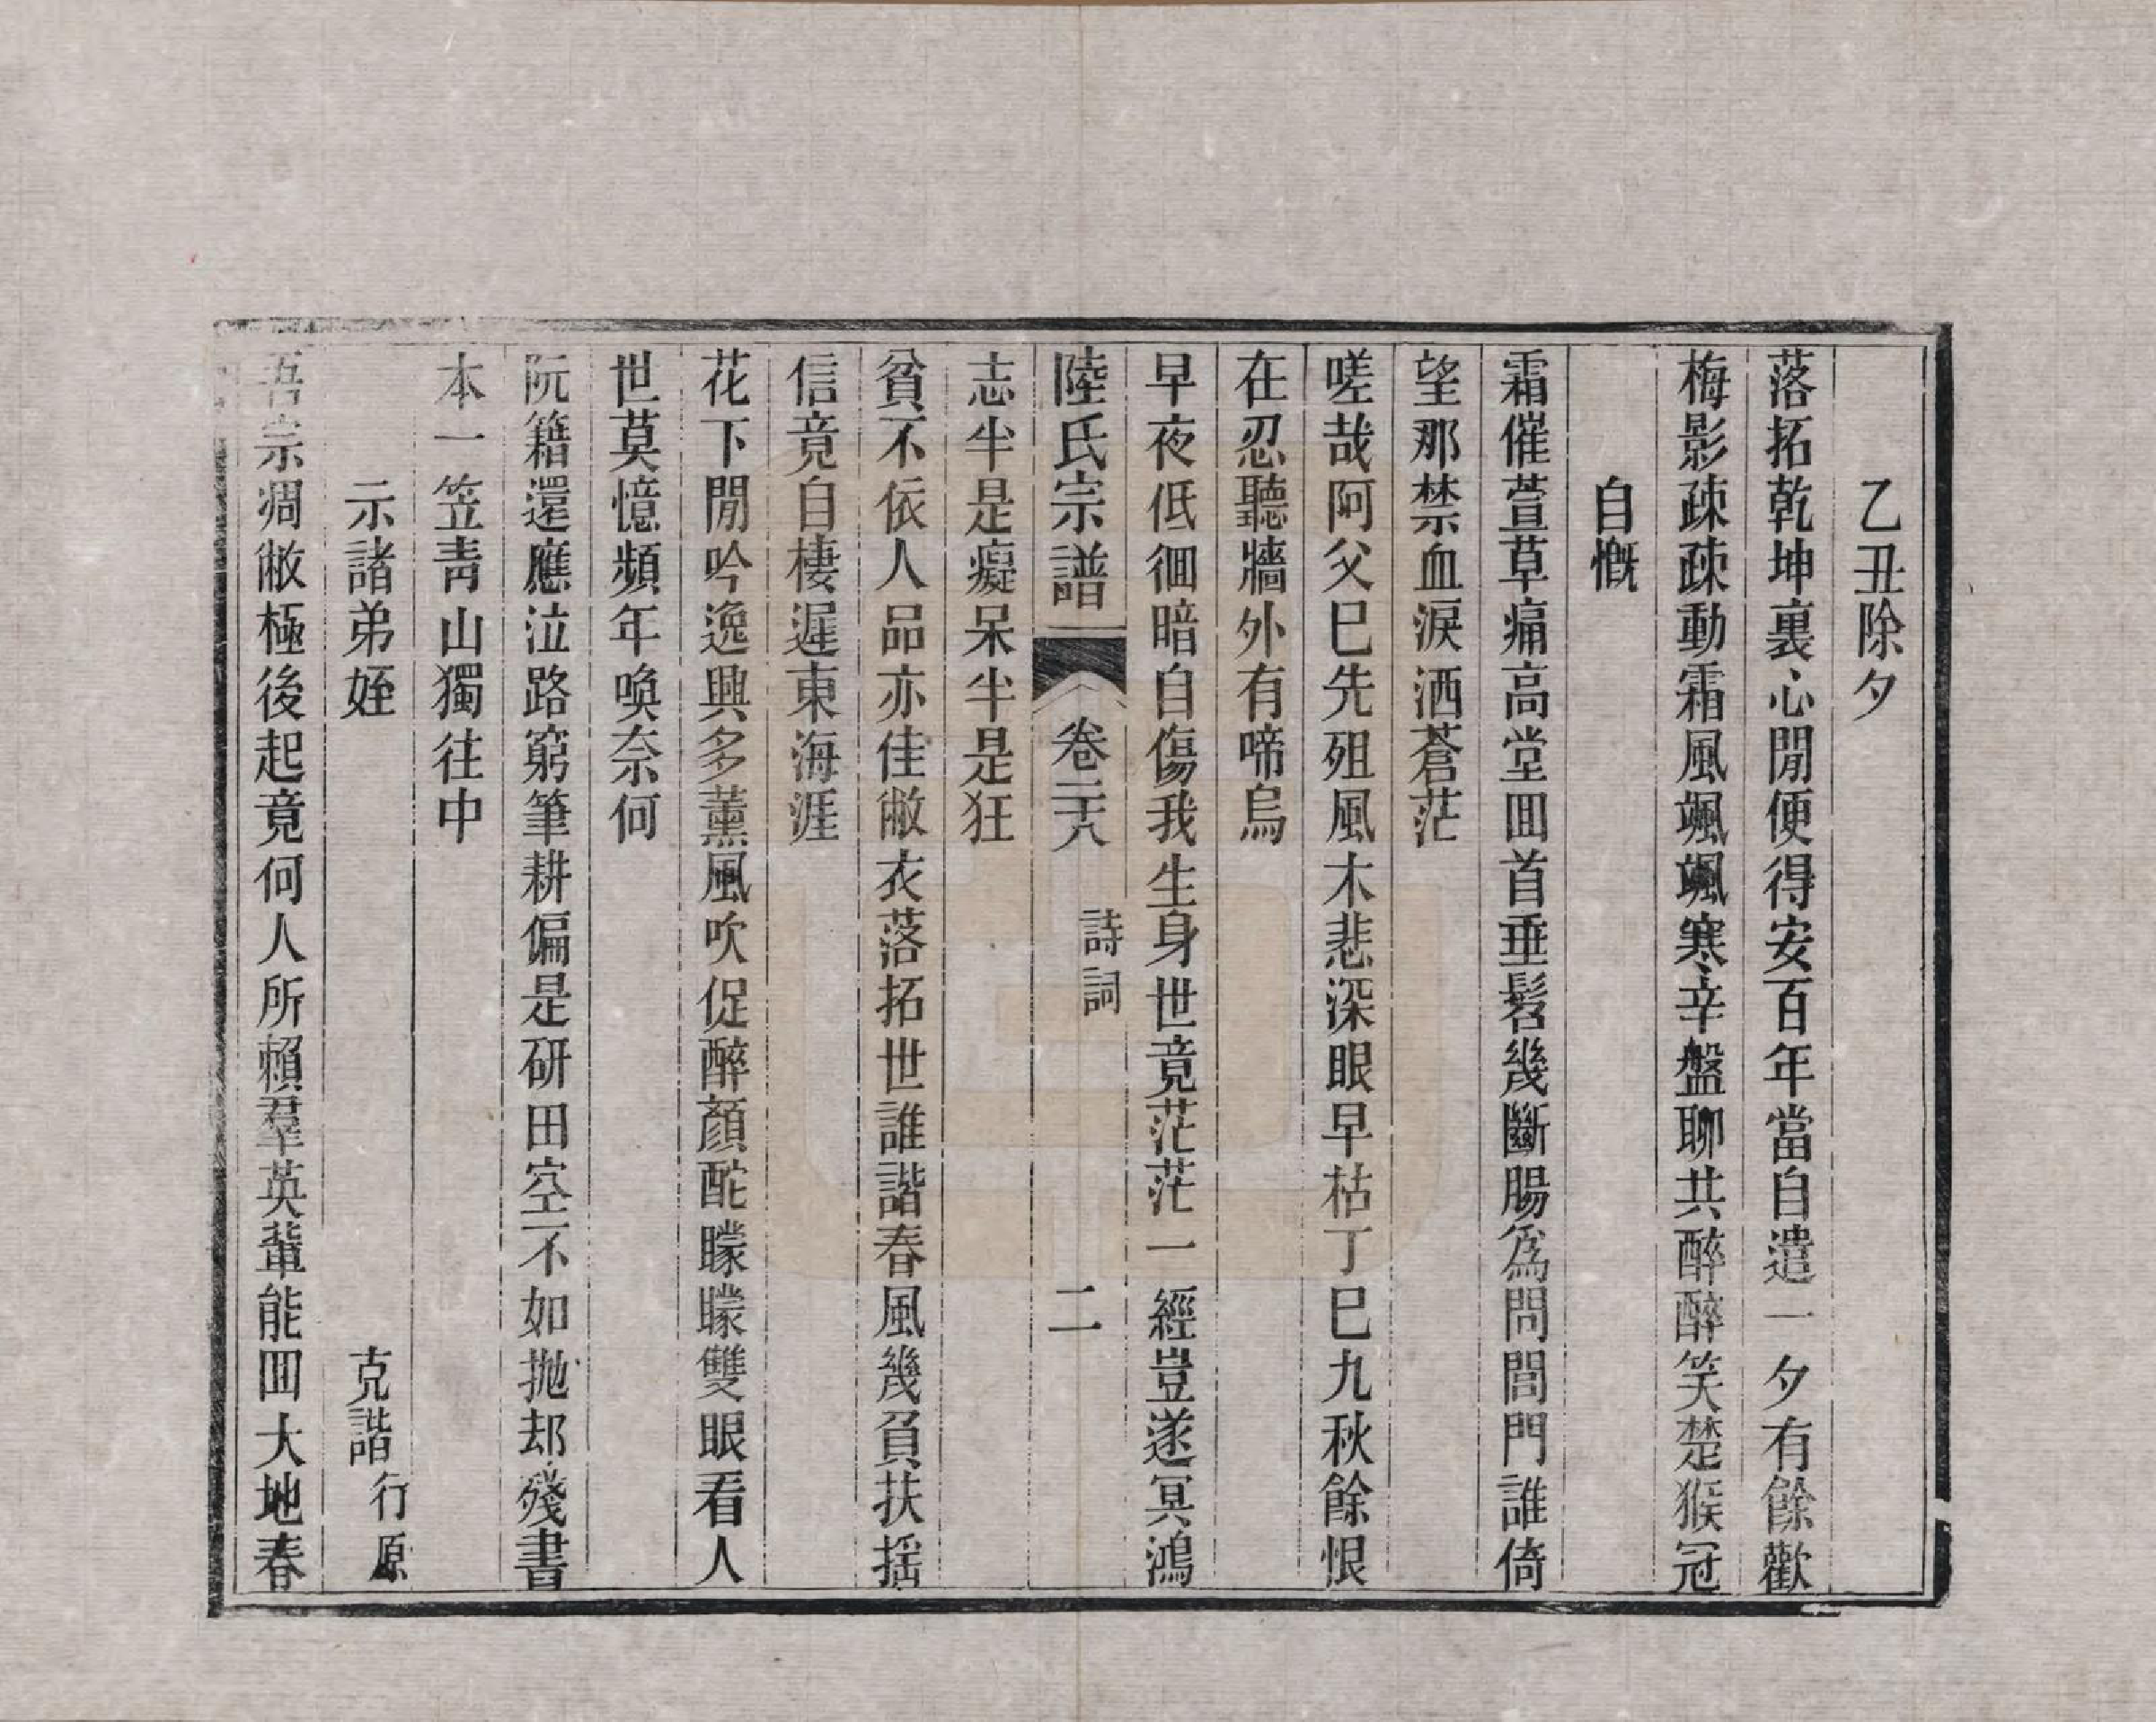 乙丑除夕
落拓乾坤裏心閒便得安百年當自遣一夕有餘歡
梅影疎疎動霜風颯颯寒辛盤聊共醉醉笑楚猴冠
自慨
霜催萱草痛高堂囬首垂髫幾斷腸爲問閭門誰倚
望那禁血淚洒蒼茫
嗟哉阿父巳先殂風木悲深眼早枯丁巳九秋餘恨
在忍聽牆外有啼烏
早夜低徊暗自傷我生身世竟茫茫一經豈遂冥鴻
陸氏宗譜 卷二十八 詩詞 二
志半是癡呆半是狂
貧不依人品亦佳敝衣落拓世誰諧春風幾負扶揺
信竟自棲遲東海涯
花下閒吟逸興多薰風吹促醉顔酡矇矇雙眼看人
世莫憶頻年喚奈何
阮籍還應泣路窮筆耕偏是研田空不如抛却殘書
本一笠青山獨往中
示諸弟姪 克諧 行原
吾宗凋敝極後起竟何人所賴羣英輩能囬大地春